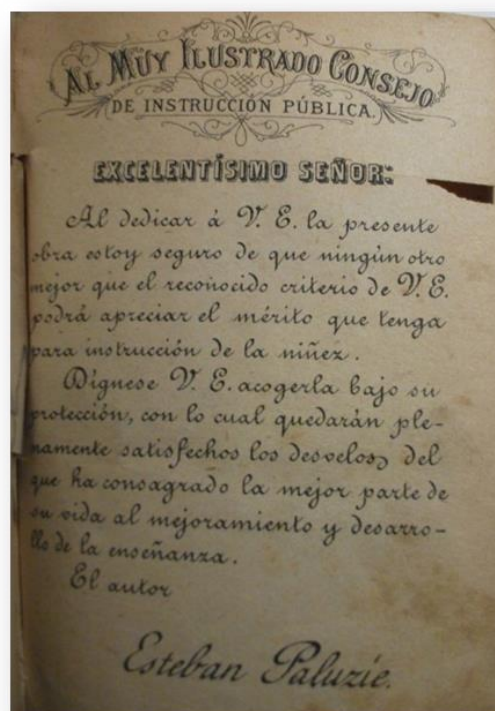 AL MUY ILUSTRADO CONSEJO
DE INSTRUCCIÓN PÚBLICA.
EXCELENTÍSIMO SEÑOR:
Al dedicar á V. E. la presente
obra estoy seguro de que ningún otro
mejor que el reconocido criterio de V. E.
podrá apreciar el mérito que tenga
para instrucción de la niñez.
Dígnese V. E. acogerla bajo su
protección, con lo cual quedarán ple-
namente satisfechos los desvelos, del
que ha consagrado la mejor parte de
su vida al mejoramiento y desarro-
llo de la enseñanza.
El autor
Esteban Paluzíe.